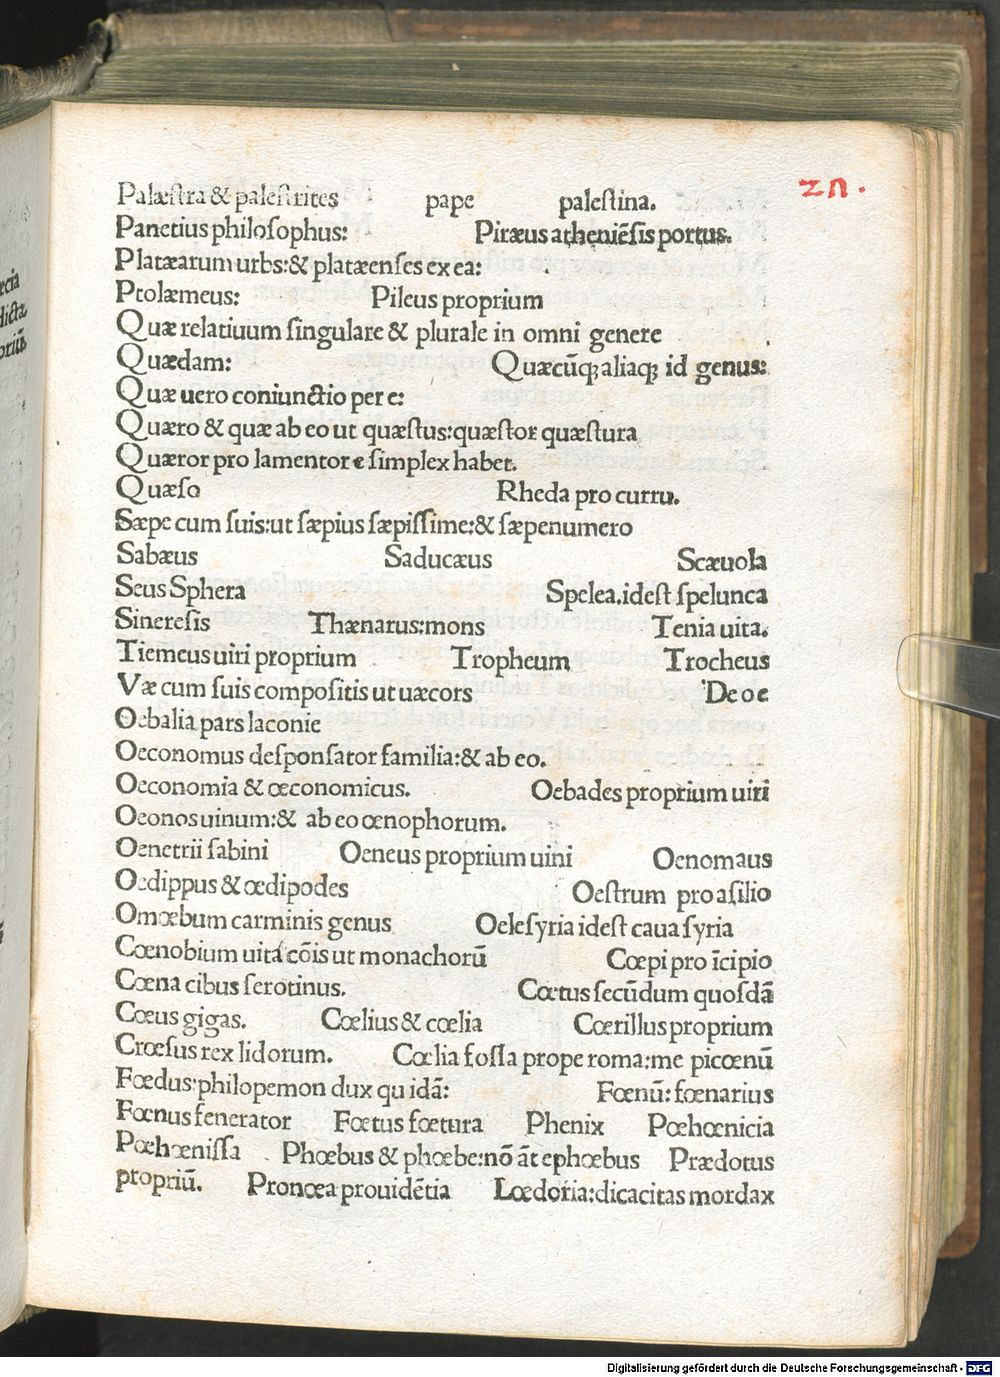 zn.
Palæstra & palestrites pape palestina.
Panetius philosophus: Piræus atheniẽsis portus.
Platæarum urbs:& platæenses ex ea:
Ptolæmeus: Pileus proprium
Quæ relatiuum singulare & plurale in omni genere
Quædam: Quæcũq; aliaq; id genus:
Quæ uero coniunctio per e:
Quæro & quæ ab eo ut quæstus:quæstor quæstura
Quæror pro lamentor e simplex habet.
Quæso Rheda pro curru.
Sæpe cum suis:ut sæpius sæpissime:& sæpenumero
Sabæus Saducæus Scæuola
Seus Sphera Spelea.idest spelunca
Sineresis Thænarus:mons Tenia uita.
Tiemeus uiri proprium Tropheum Trocheus
Væ cum suis compositis ut uæcors De oe
Oebalia pars laconie
Oeconomus desponsator familia:& ab eo.
Oeconomia & œconomicus. Oebades proprium uiri
Oeonos uinum:& ab eo œnophorum.
Oenetrii sabini Oeneus proprium uini Oenomaus
Oedippus & œdipodes Oestrum pro asilio
Omœbum carminis genus Oelesyria idest caua syria
Cœnobium uita cõis ut monachorũ Cœpi pro ĩcipio
Cœna cibus serotinus. Cœtus secũdum quosdã
Cœus gigas. Cœlius & cœlia Cœrillus proprium
Crœsus rex lidorum. Cœlia fossa prope roma:me picœnũ
Fœdus:philopemon dux quidã: Fœnũ: fœnarius
Fœnus fenerator Fœtus fœtura Phenix Pœhœnicia
Pœhœnissa Phœbus & phœbe:nõ ãt ephœbus Prædotus
propriũ. Pronœa prouidẽtia Lœdoria:dicacitas mordax
ecia
dicta.
priũ
Digitalisierung gefördert durch die Deutsche Forschungsgemeinschaft - DFG